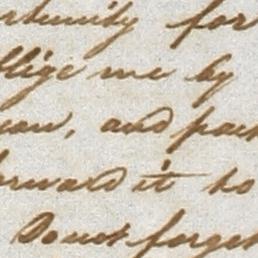 rtunity for
blige me by
ean, and pack
orward it to
Do not forget